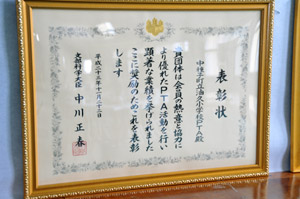 表彰状
中種子町立油久小学校PTA殿
貴団体は会員の熱意と協力に
より優れたPTA活動を行い
顕著な業績を挙げられました
ここに奨励のためこれを表彰
します
平成二十三年十一月二十二日
文部科学大臣 中川正春